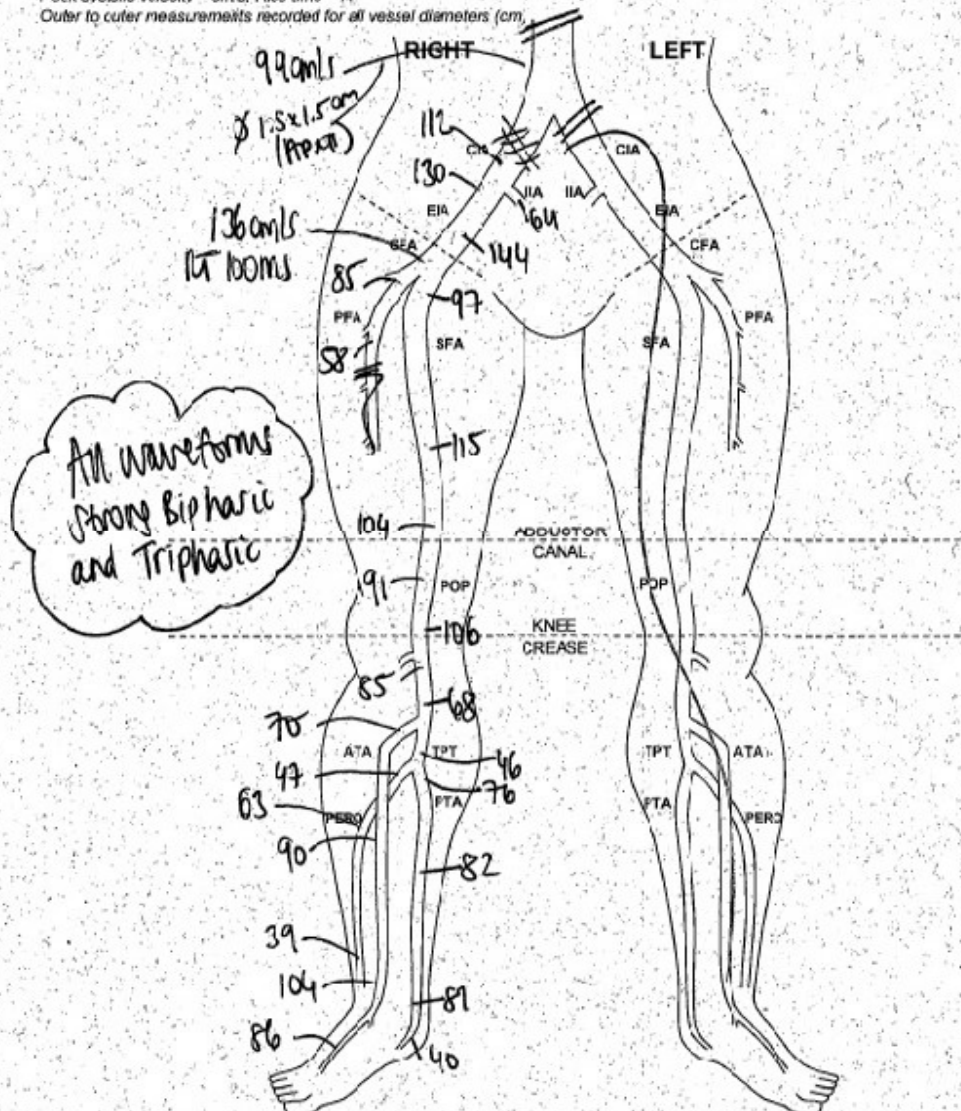 Outer to outer measurements recorded for all vessel diameters (cm)
RIGHT
LEFT
99cm/s
Ø 1.5x1.5cm
112
CIA
CIA
130
IIA
IIA
64
EIA
EIA
136cm/s
RT 100ms
CFA
CFA
144
85
97
PFA
PFA
SFA
SFA
58
All waveforms
Strong Biphasic
and Triphasic
115
104
ADDUCTOR
CANAL
191
POP
POP
106
KNEE
CREASE
85
68
70
ATA
TPT
TPT
ATA
46
47
76
PTA
PTA
63
PERO
PERO
90
82
39
104
81
86
40